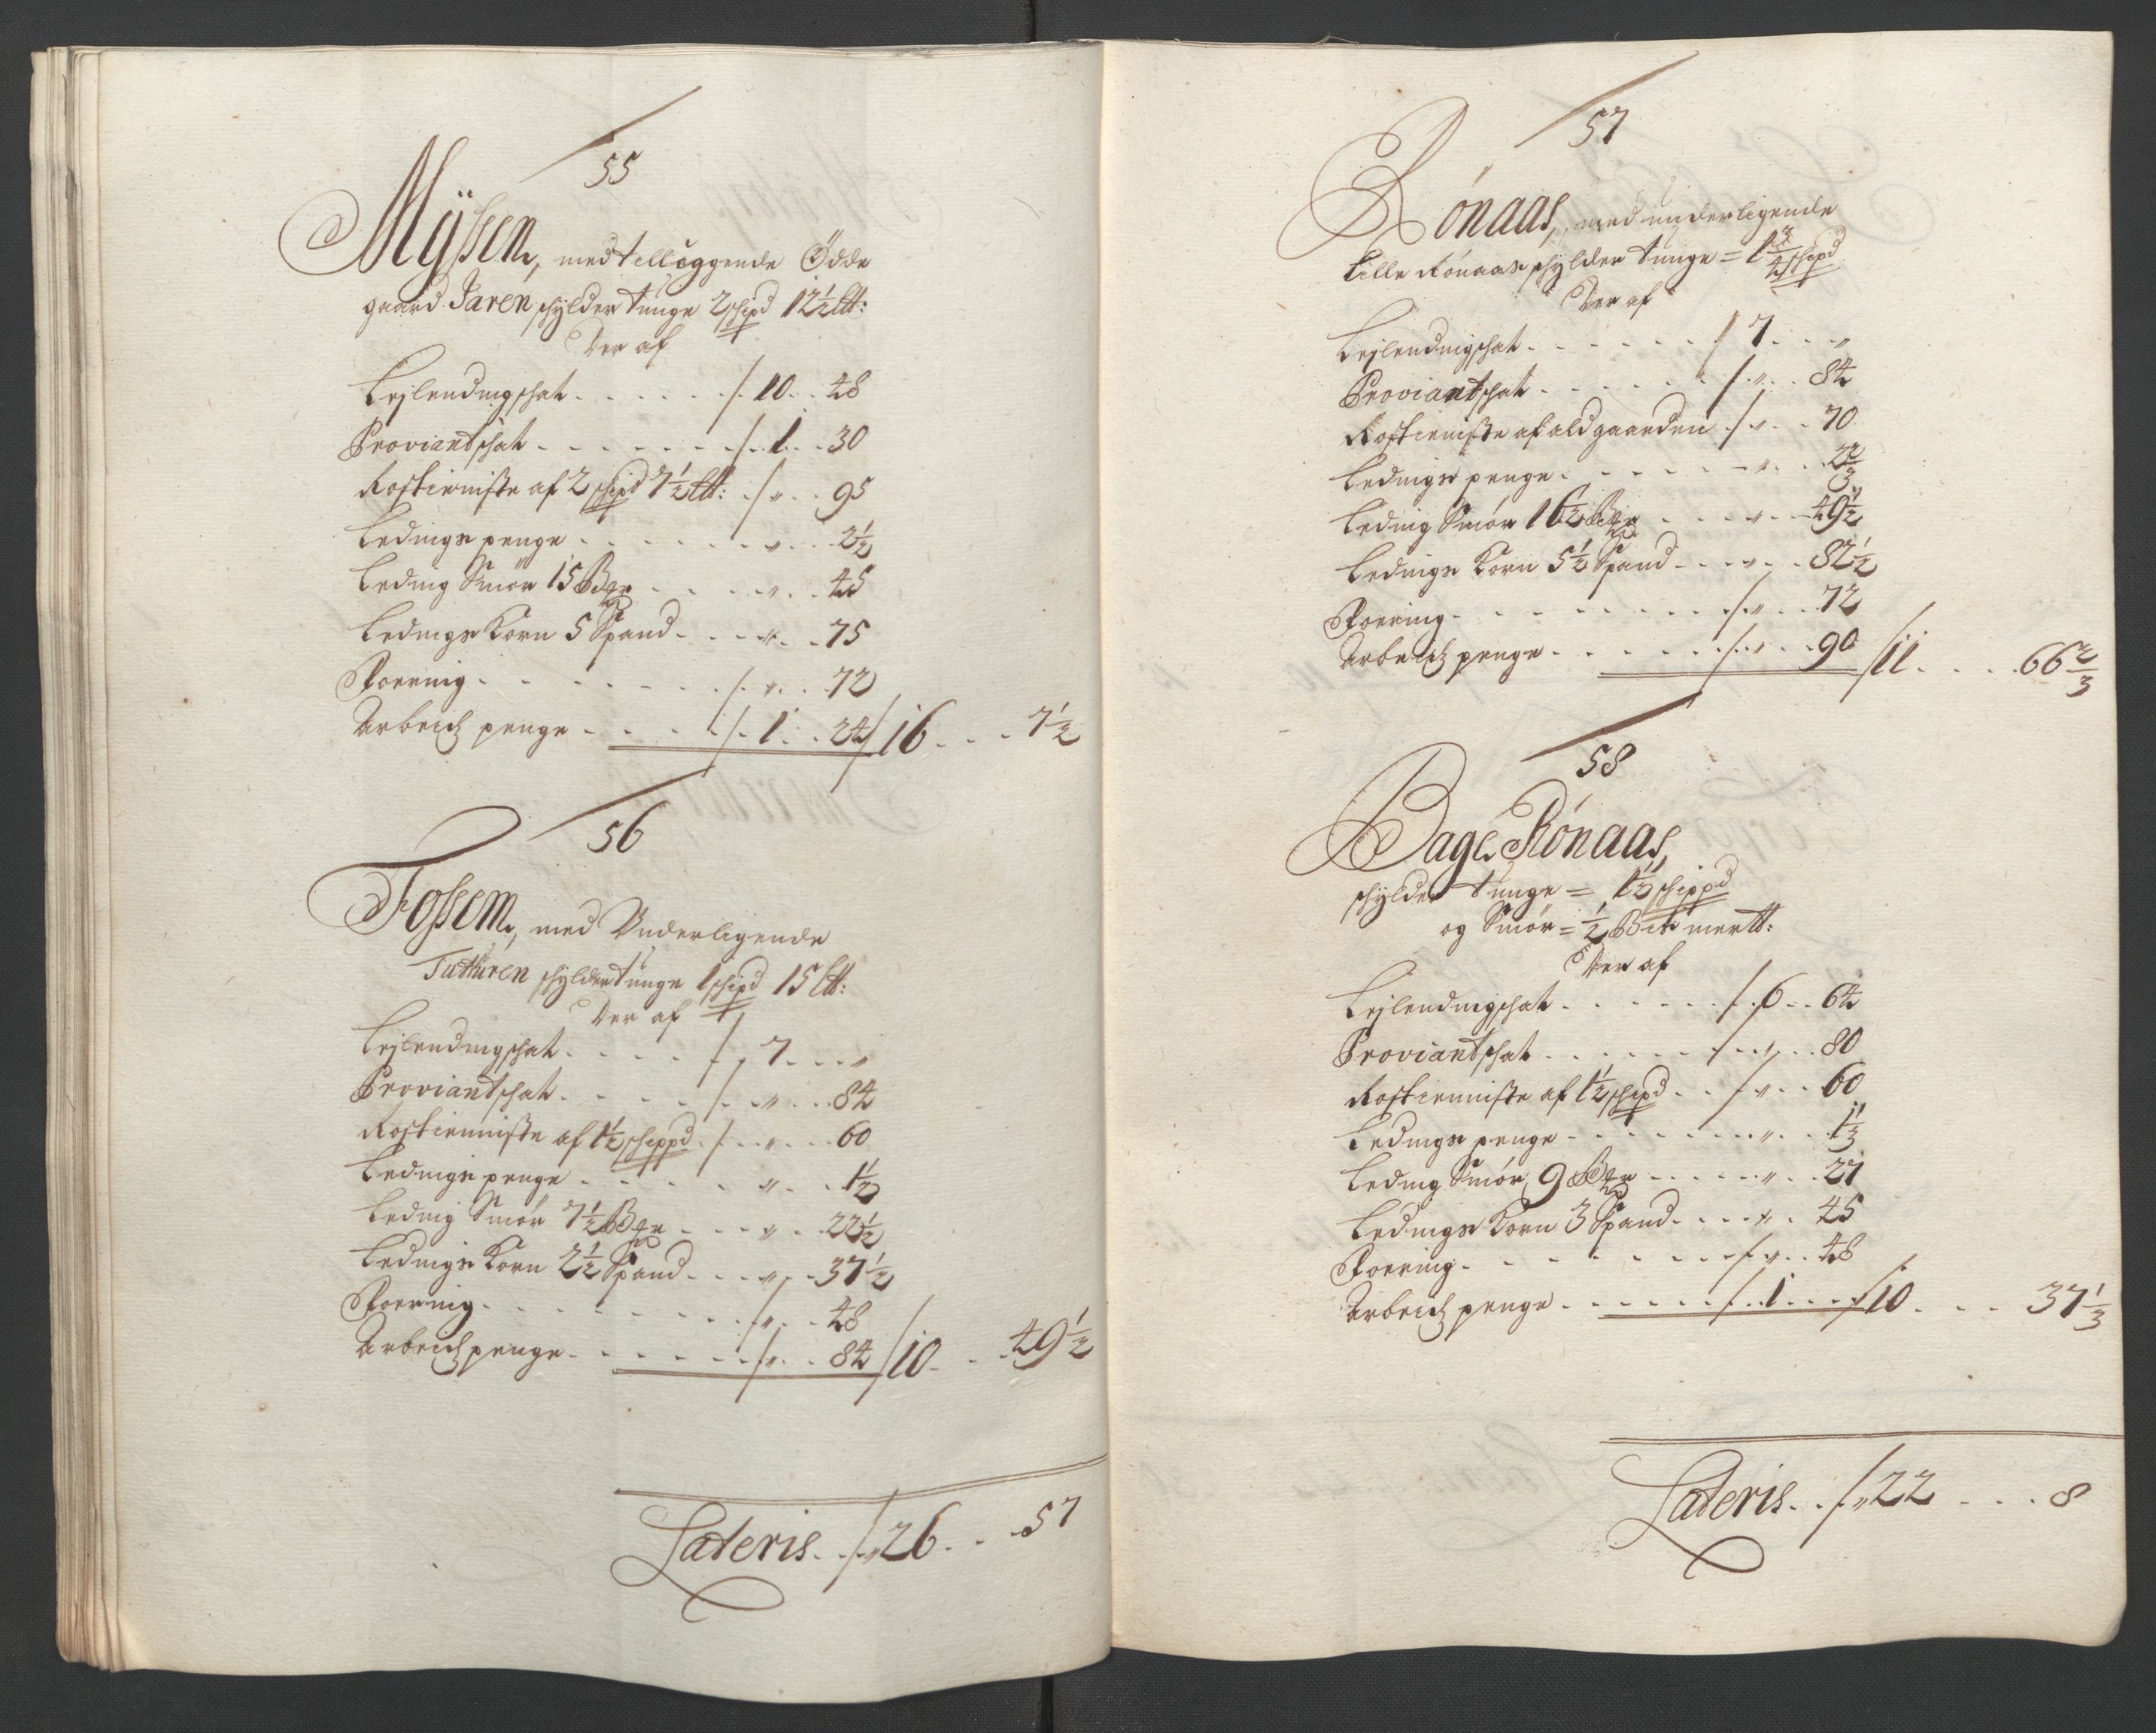 55
Mÿssen, med tilliggende Ödde
gaard Jaren schylder tunge 2 schipd 12½ Ltt:
Der af
Lejlendingschat . . . . . . 10 . . 48
Proviantschat . . . . . . . 1 . . 30
Rostieniste af 2 schipd 7½ Ltt: . . „ . . 95
Ledings penge . . . . . . . „ . . 2½
Leding Smör 15 Bger . . . . „ . . 45
Ledings Korn 5 Spand . . . „ . . 75
Foering . . . . . . . . „ . . 72
Arbeids penge . . . . . 1 . . 24 / 16 . . . 7½
56
Fossem, med Underligende
Tuthuren schylder tunge 1 schipd 15 Ltt:
Der af
Lejlendingschat . . . . . . 7 . . . „
Proviantschat . . . . . . „ . . 84
Rostieniste af 1½ schippd . . „ . . 60
Ledings penge . . . . . „ . . 1½
Leding Smör 7½ Bger . . . „ . . 22½
Ledings Korn 2½ Spand . . . „ . . 37½
Foering . . . . . . . . „ . . 48
Arbeids penge . . . . . . „ . . 84 / 10 . . 49½
Lateris . . „ 26 . . . 57
57
Rönaas, med underligende
Lille Rönaas schylder tunge = 1¾ schipd
Der af
Lejlendingschat . . . . . . 7 . . . „
Proviantschat . . . . . . „ . . 84
Rostieniste af ald gaarden . „ . . 70
Ledings penge . . . . . . „ . . 2⅔
Leding Smör 16½ Bger . . . „ . . 49½
Ledings Korn 5½ Spand . . . „ . . 82½
Foering . . . . . . . . „ . . 72
Arbeids penge . . . . . . „ . . 90 / 11 . . . 66⅔
58
Bage Rönaas,
schylder tunge = 1½ schippd
og Smör = ½ Bis mertt:
Der af
Lejlendingschat . . . . . . 6 . . 64
Proviantschat . . . . . . „ . . 80
Rostieniste af 1½ schipd . . „ . . 60
Ledings penge . . . . . . „ . . 1⅓
Leding Smör 9 Bger . . . . „ . . 27
Ledings Korn 3 Spand . . . „ . . 45
Foering . . . . . . . . „ . . 48
Arbeids penge . . . . . . 1 . . „ / 10 . . . 37⅓
Lateris . . „ 22 . . . 8